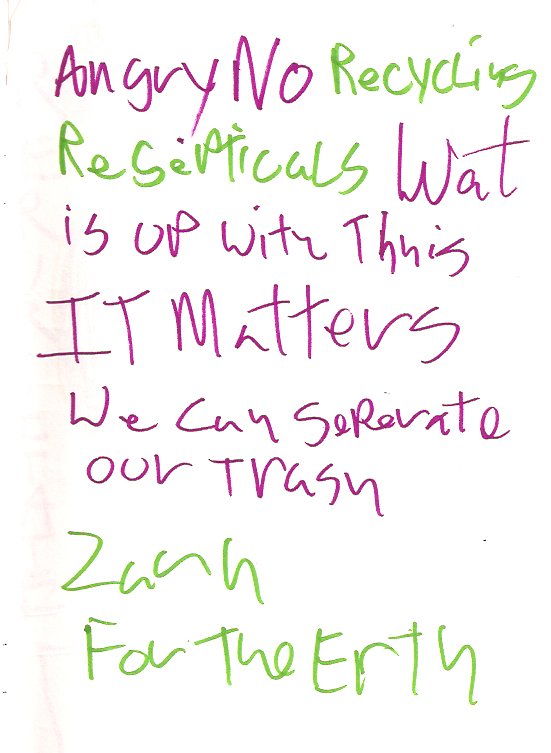 Angry No Recycling
Resepticals Wat
is up with Thnis
IT Matters
We can seperate
our Trash
Zach
For The Erth